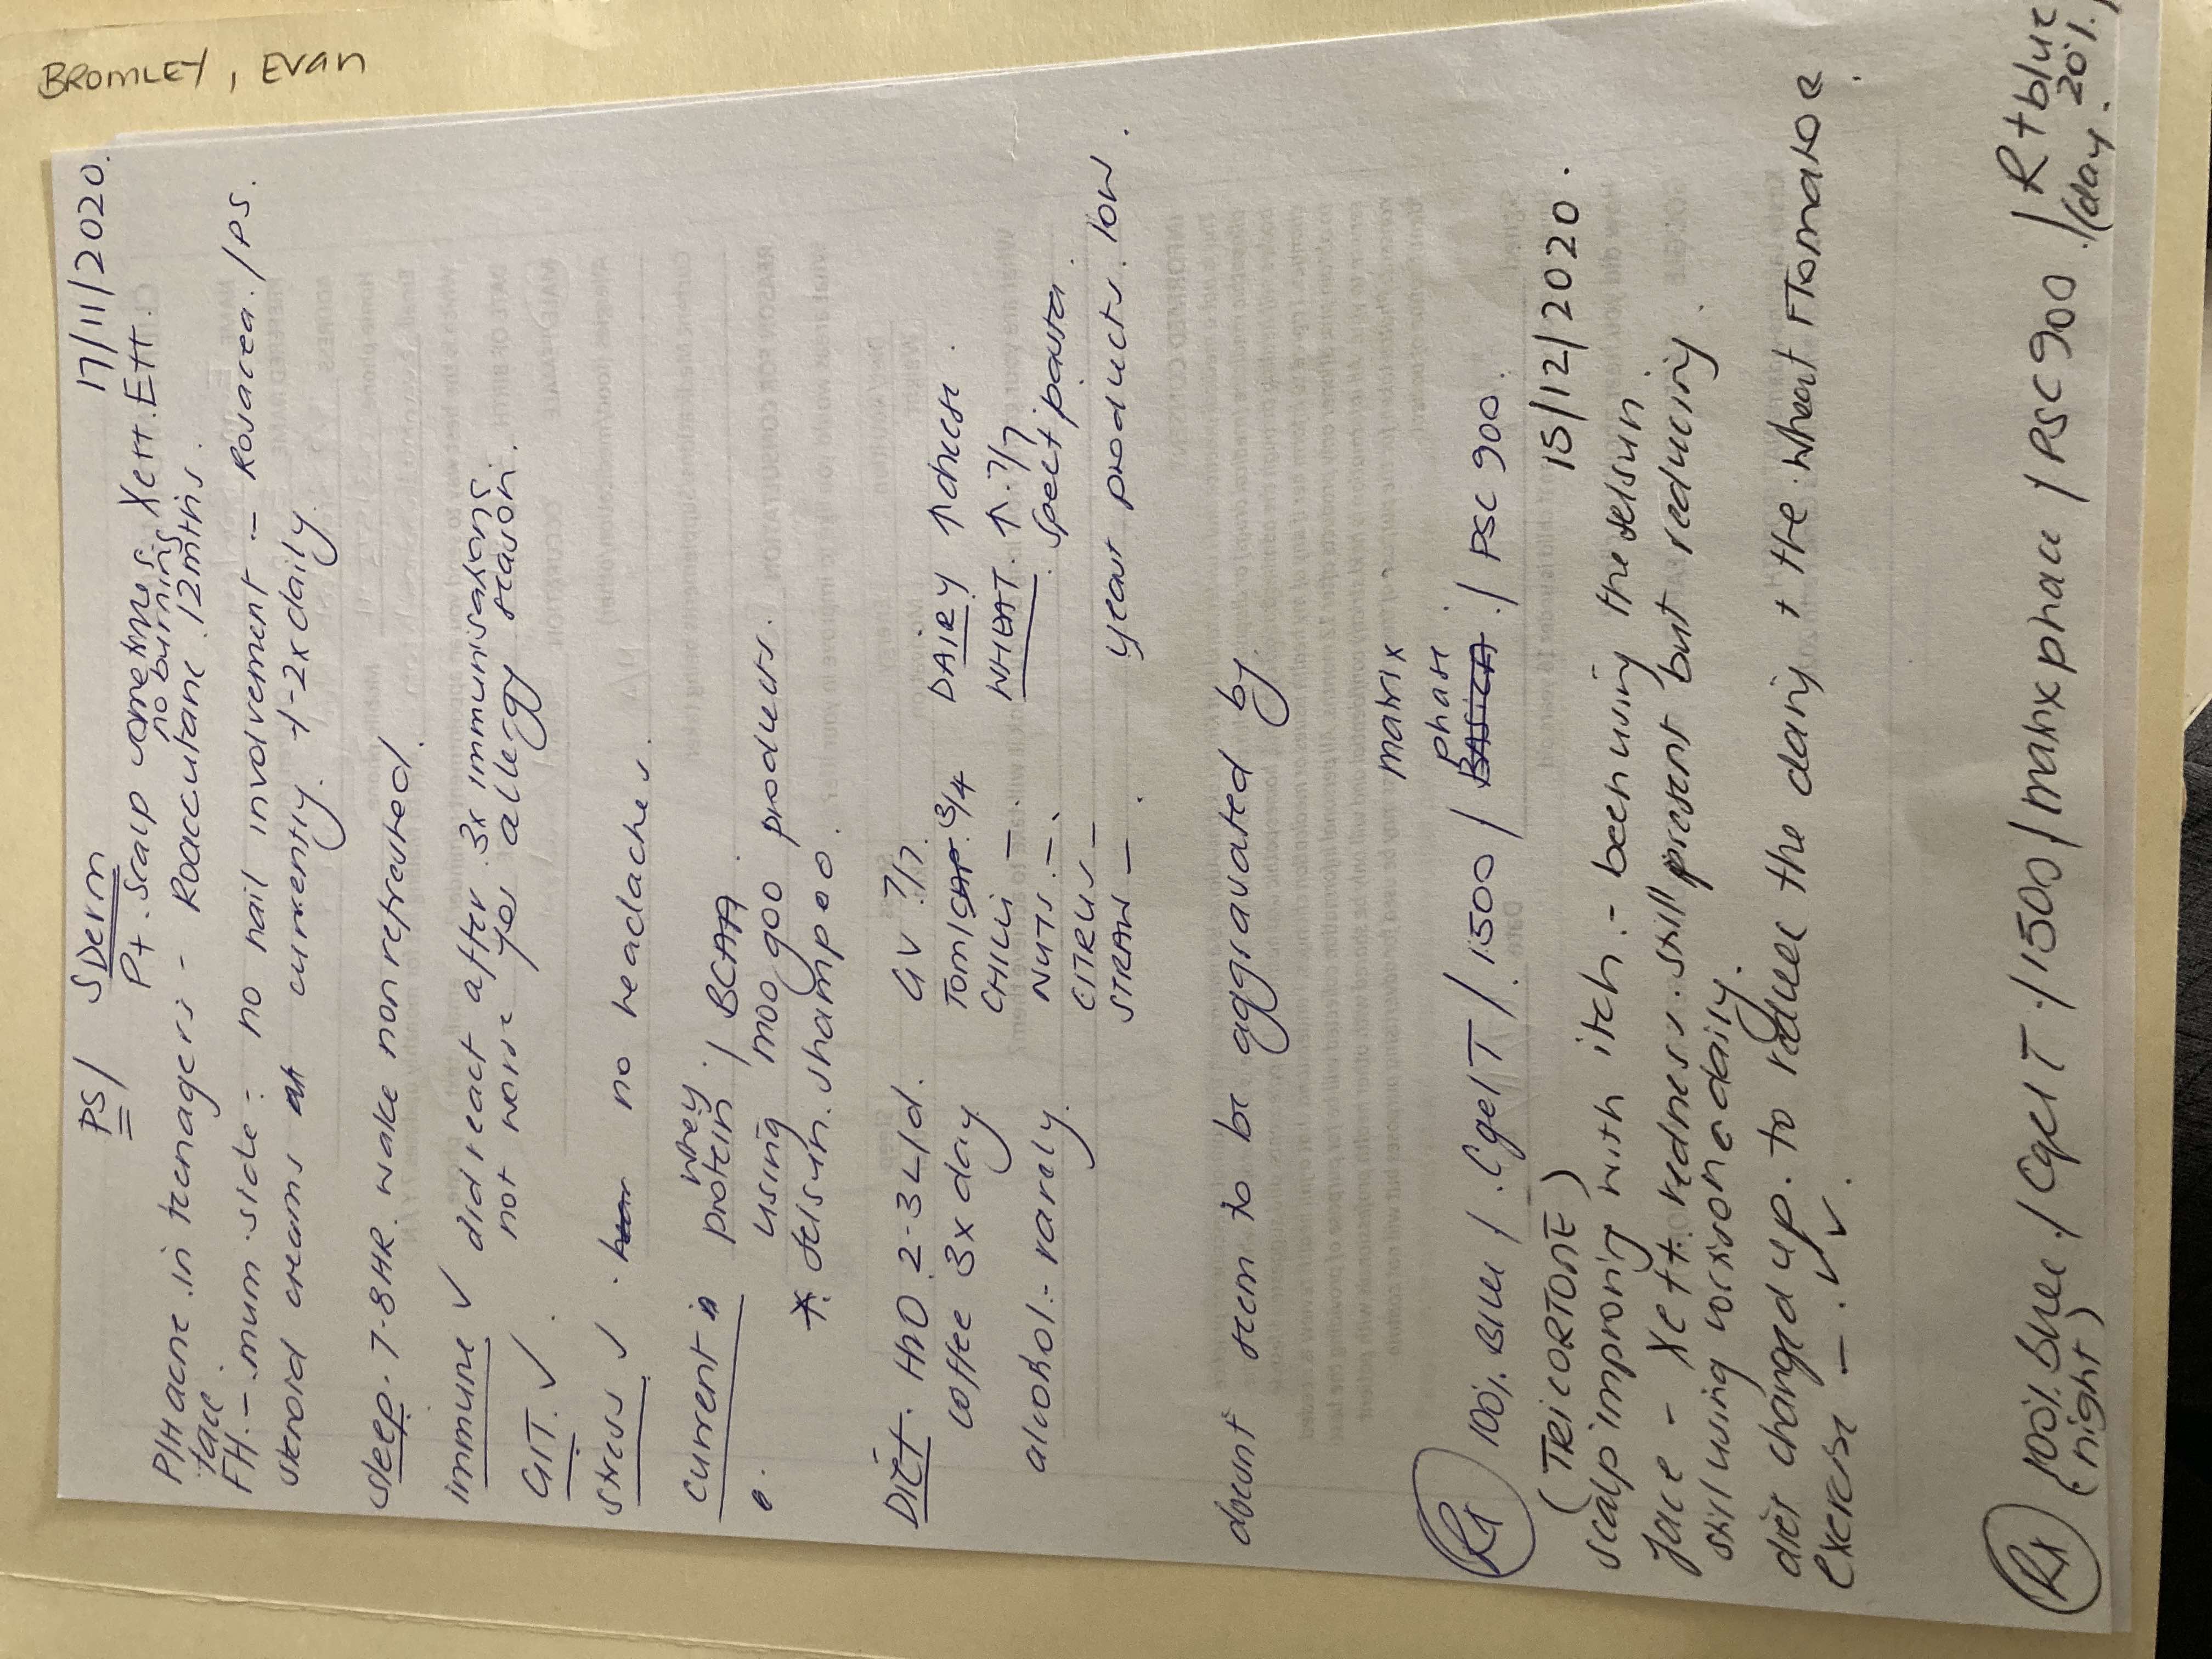 BROMLEY, Evan
PS / SDerm 17/11/2020.
P+. Scalp sometimes Xett. Ett.
no burning
P/H acne in teenagers - Roaccutane 12mths.
face.
FH. - mum side: no nail involvement - Rosacea. / PS.
steroid creams currently. 1-2x daily.
sleep. 7-8HR. wake nonrefreshed.
immune ✓ did react after 3x immunisations
not worse for allergy season.
GIT. ✓.
stress ✓. no headaches.
current whey
protein. / BCAA.
using moo goo products.
* selsun. shampoo.
DIET. H2O 2-3L/d. GV 7/7. DAIRY ↑ cheese.
coffee 3x day TOM/CAP. 3/4 WHEAT. ↑. 7/7
CHILLI -. Spelt pasta.
alcohol. - rarely. NUTS. -.
CITRUS - yeast products. low.
STRAW -.
doesnt seem to be aggravated by
matrix
phase
Rx 100% Blue / . CgelT / . 1500 / BASICA . / PSC 900.
(TRICORTONE) 15/12/2020.
scalp improving with itch. - been using the selsun
face - Xett. redness. still present but reducing.
still using cortisone daily.
diet changed up. to reduce the dairy + the wheat + Tomatoe.
exercise - . ✓.
Rx 100% Blue / CgelT. / 1500 / matrx phase / PSC 900 . / R + blue
(night) 20%.
/day.